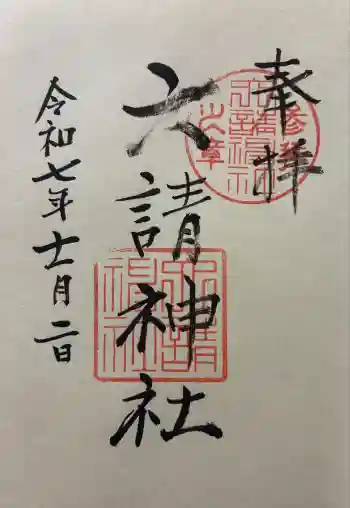 奉拝
六請神社
令和七年十一月二日
参拝
之章
六請神社
六請神社